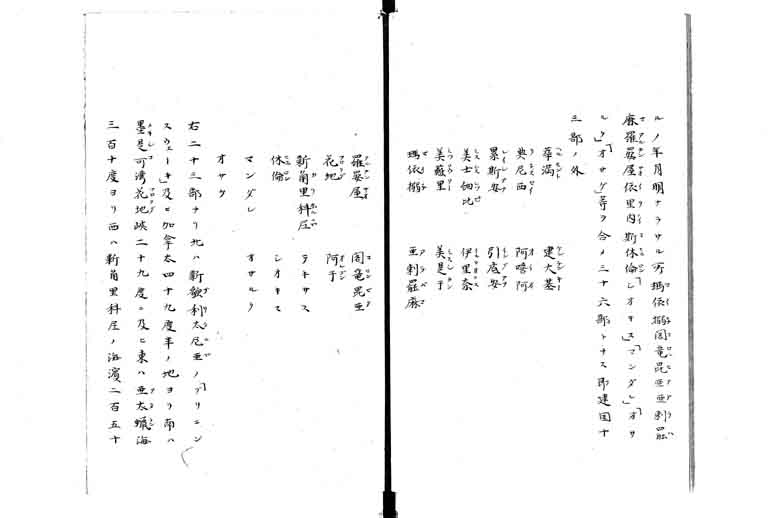 ルノ年月明ナラサル所瑪依搦閣竜昆亜亜剌罷
麻羅晏屋依里内斯休倫「レオキス」「マンダレ」「オサ
ルク」「オサゲ」等ヲ合メ三十六部トナス即建国十
三部ノ外
華満 建大基
奥尼西 阿嘻阿
累斯安 引底安
美士細比 伊里奈
美蘇里 美是于
瑪依搦 亜剌罷麻
羅晏屋 閣竜昆亜
花地 阿于
新角里科尼 テキサス
休倫 レオキス
マンダレ オサルク
オサケ
右二十三部ナリ北ハ新歛利太尼亜ノ「プリユン
スウェーキ」及ヒ加拿太四十九度半ノ地ヨリ南ハ
墨是可湾花地峡二十九度ニ及ヒ東ハ亜太蠟海
三百十度ヨリ西ハ新角里科尼ノ海濱二百五十